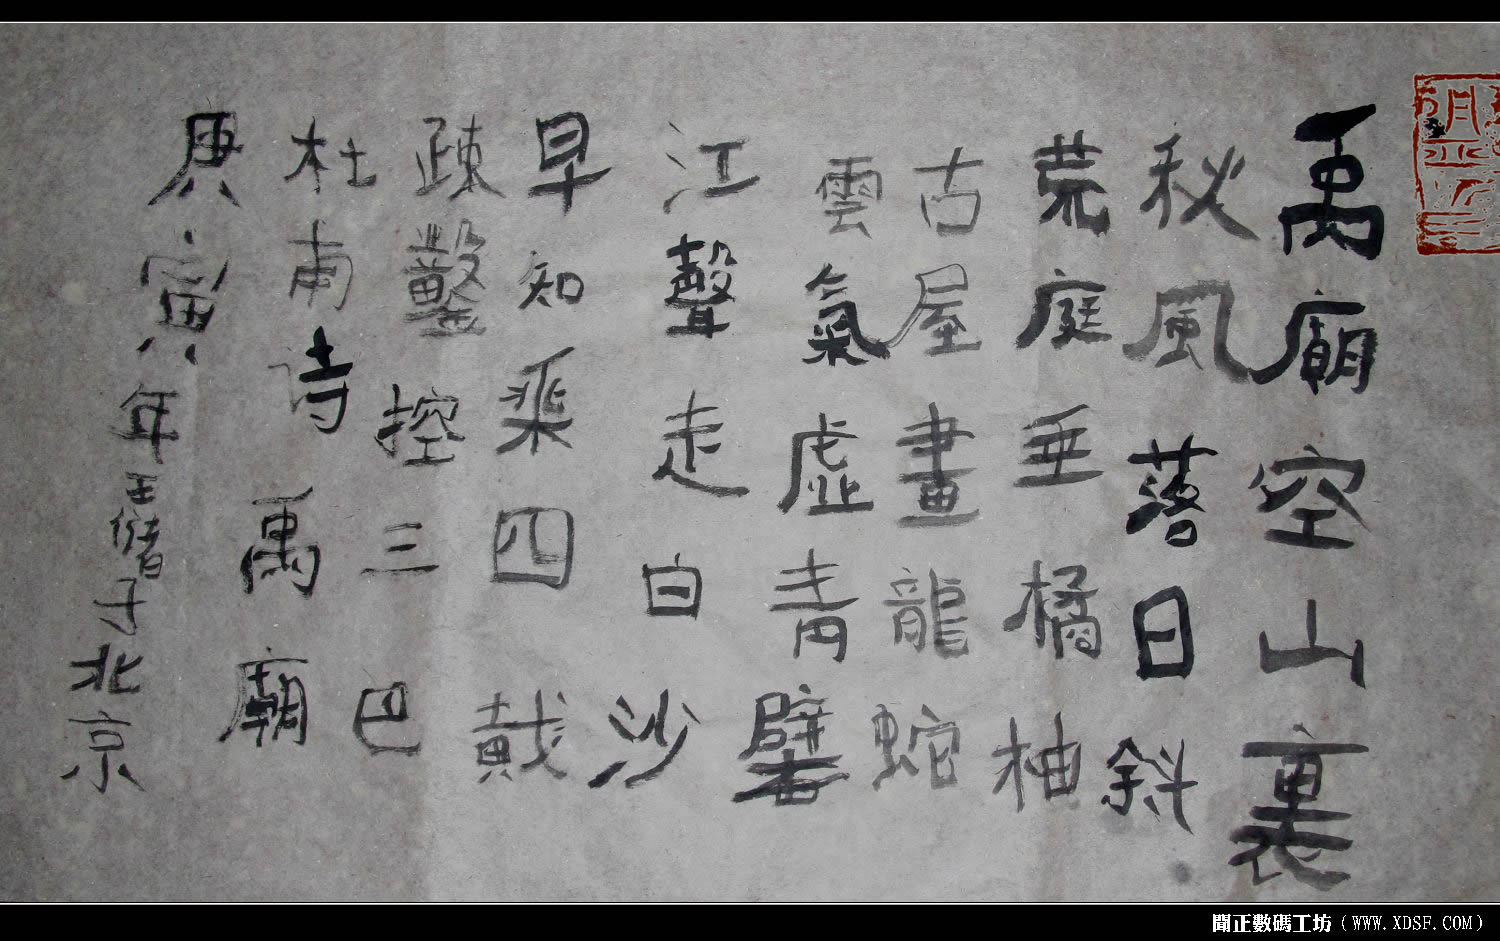 禹廟空山裏
秋風落日斜
荒庭垂橘柚
古屋畫龍蛇
雲氣虛青壁
江聲走白沙
早知乘四載
疎鑿控三巴
杜甫诗禹廟
庚寅年王儲子北京
聞正數碼工坊（WWW.XDSF.COM）